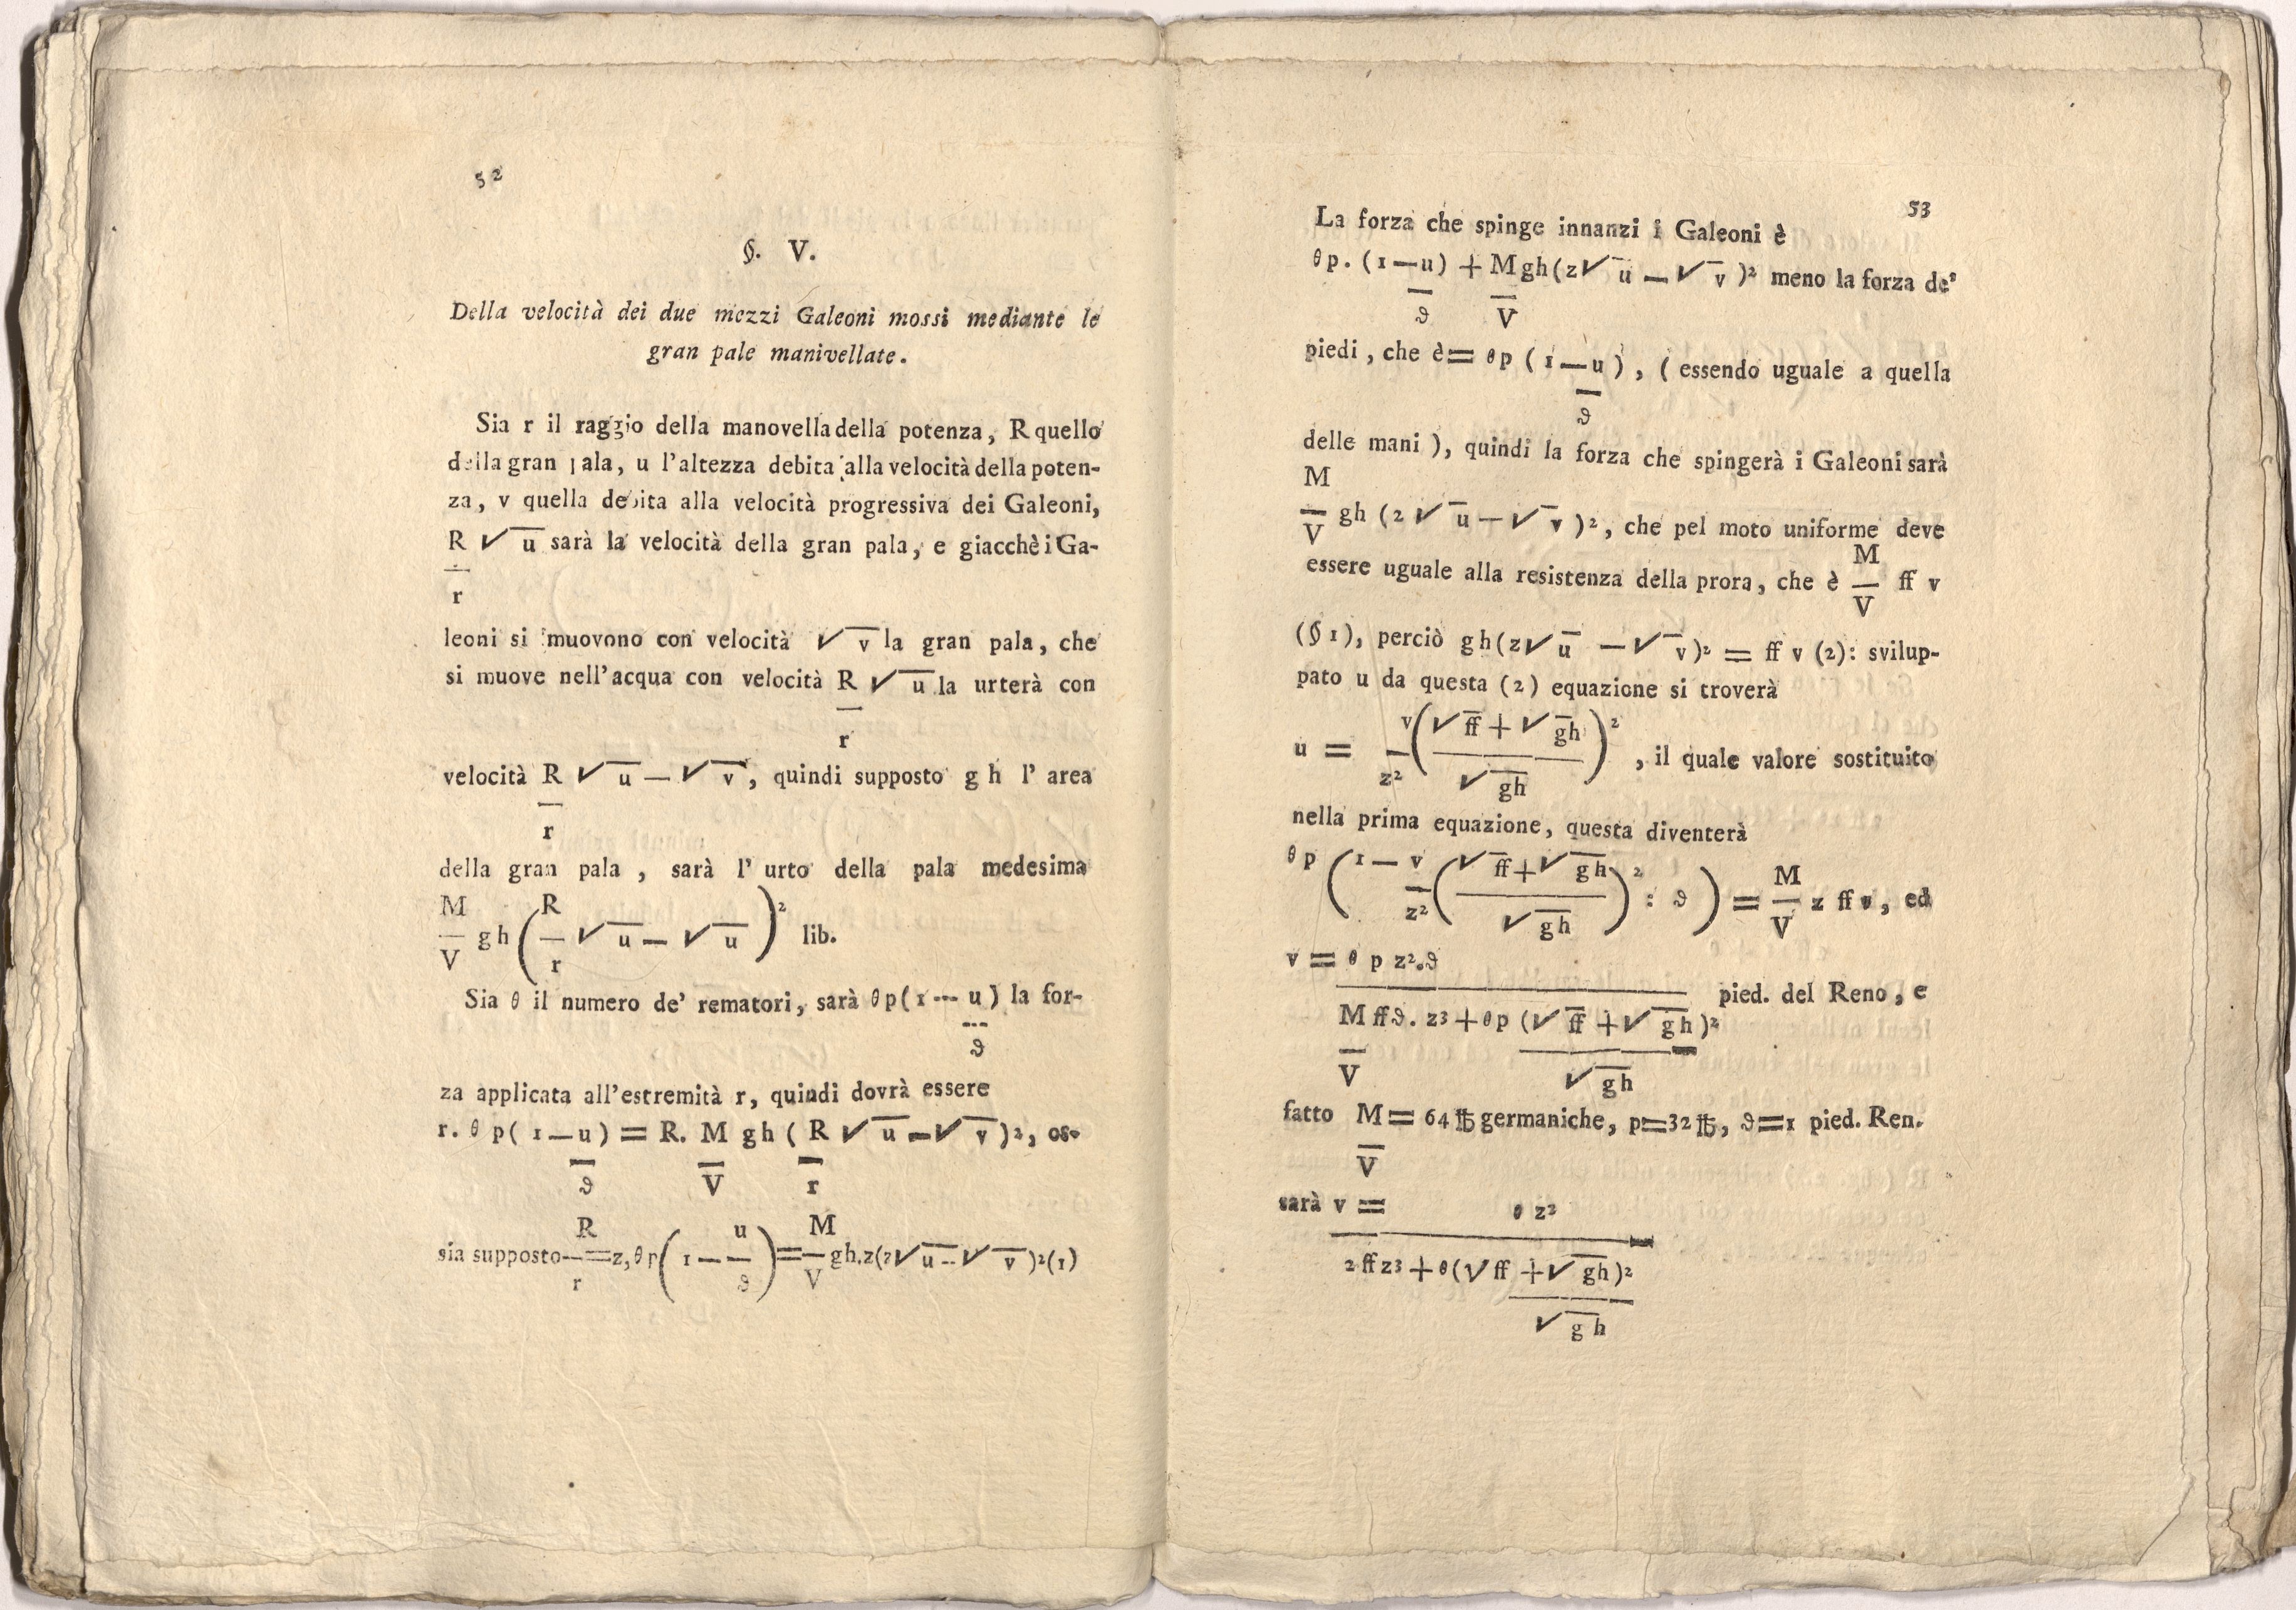 52
§. V.
Della velocità dei due mezzi Galeoni mossi mediante le
gran pale manivellate.
Sia r il raggio della manovella della potenza, R quello
della gran pala, u l'altezza debita alla velocità della poten-
za, v quella debita alla velocità progressiva dei Galeoni,
R/r √u sarà la velocità della gran pala, e giacchè i Ga-
leoni si muovono con velocità √v la gran pala, che
si muove nell'acqua con velocità R/r √u la urterà con
velocità R/r √u — √v, quindi supposto g h l' area
della gran pala, sarà l' urto della pala medesima
M/V gh (R/r √u — √u)² lib.
Sia θ il numero de' rematori, sarà θp(1 --- u/ϑ) la for-
za applicata all'estremità r, quindi dovrà essere
r. θ p( 1 — u/ϑ) = R. M/V gh ( R/r √u — √v )², os-
sia supposto R/r = z, θp(1 — u/ϑ) = M/V gh.z(z√u -- √v )²(1)
53
La forza che spinge innanzi i Galeoni è
θp. (1 — u/ϑ) + M/V gh(z√u — √v )² meno la forza de'
piedi, che è = θp ( 1 — u/ϑ ), ( essendo uguale a quella
delle mani ), quindi la forza che spingerà i Galeoni sarà
M/V gh (2 √u — √v )², che pel moto uniforme deve
essere uguale alla resistenza della prora, che è M/V ff v
(§ 1), perciò gh(z√u — √v)² = ff v (2): svilup-
pato u da questa (2) equazione si troverà
u = v/z² ((√ff + √gh)/√gh)², il quale valore sostituito
nella prima equazione, questa diventerà
θp (1 — v/z² ((√ff + √gh)/√gh)² : ϑ) = M/V z ff v, ed
v = θ p z².ϑ / (M/V ffϑ. z³ + θp (√ff + √gh)²/√gh) pied. del Reno, e
fatto M/V = 64 ℔ germaniche, p=32 ℔, ϑ=1 pied. Ren.
sarà v = θ z² / (2 ff z³ + θ(√ff + √gh)²/√gh)